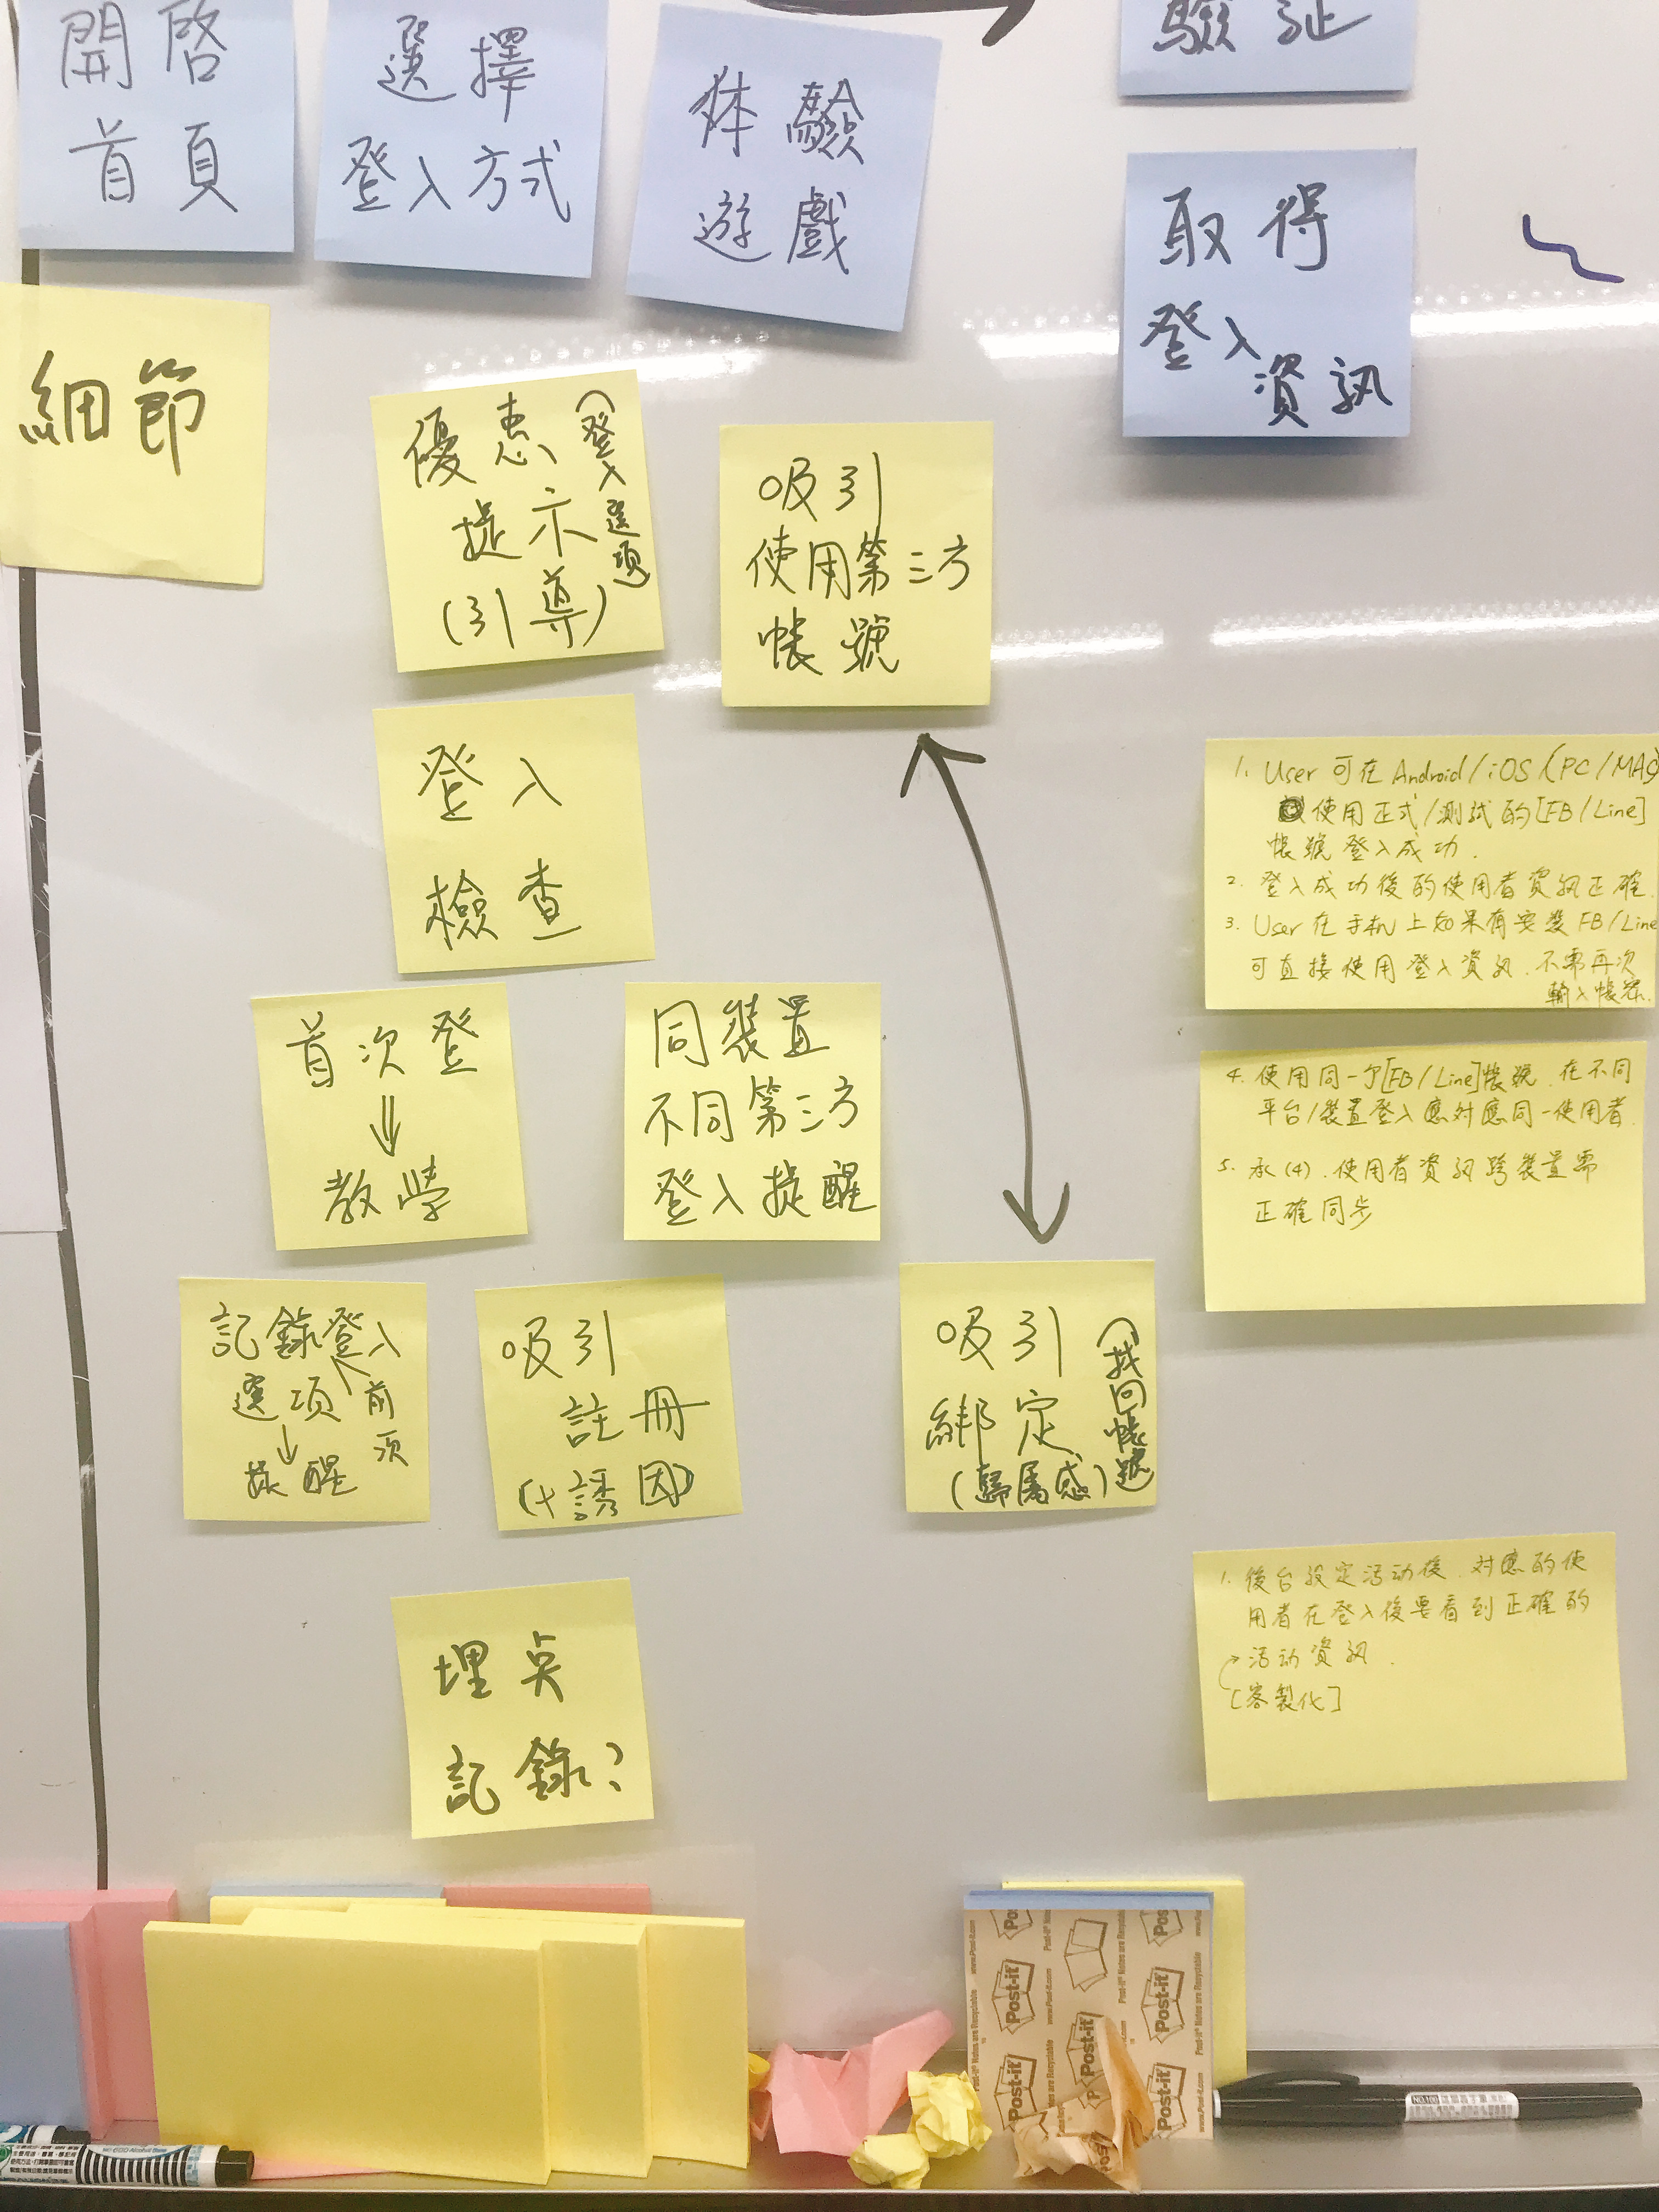 開啓
首頁
選擇
登入方式
体驗
遊戲
驗証
取得
登入
資訊
細節
優惠
提示
(引導)
(登入選項)
吸引
使用第三方
帳號
登入
檢查
首次登
⇓
教學
同裝置
不同第三方
登入提醒
記錄登入
選項
前
項
↓
提醒
吸引
註冊
(+誘因)
吸引
綁定
(歸属感)
(找回帳號)
埋点
記錄?
1. User 可在 Android/iOS (PC/MAC)
使用正式/測試的[FB/Line]
帳號登入成功.
2. 登入成功後的使用者資訊正確.
3. User 在手机上如果有安裝 FB/Line
可直接使用登入資訊.不需再次
輸入帳密.
4. 使用同一个[FB/Line]帳號.在不同
平台/裝置登入應对應同一使用者.
5. 承(4).使用者資訊跨裝置需
正確同步
1. 後台設定活动後.对應的使
用者在登入後要看到正確的
活动資訊.
[客製化]
Post-it
Post-it
Post-it
Post-it
Post-it
Post-it
www.Post-it.com
Post-it® Notes are Recyclable
NO.100